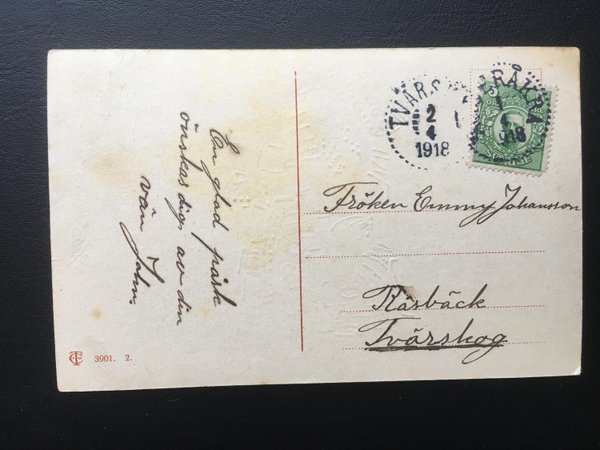 En glad påsk
önskas dig av din
vän John.
TVÄRS
2
4
1918
ÅKRA
1
4
1918
5
SVERIGE
Fröken Emmy Johansson
Råsbäck
Tvärskog
3901. 2.